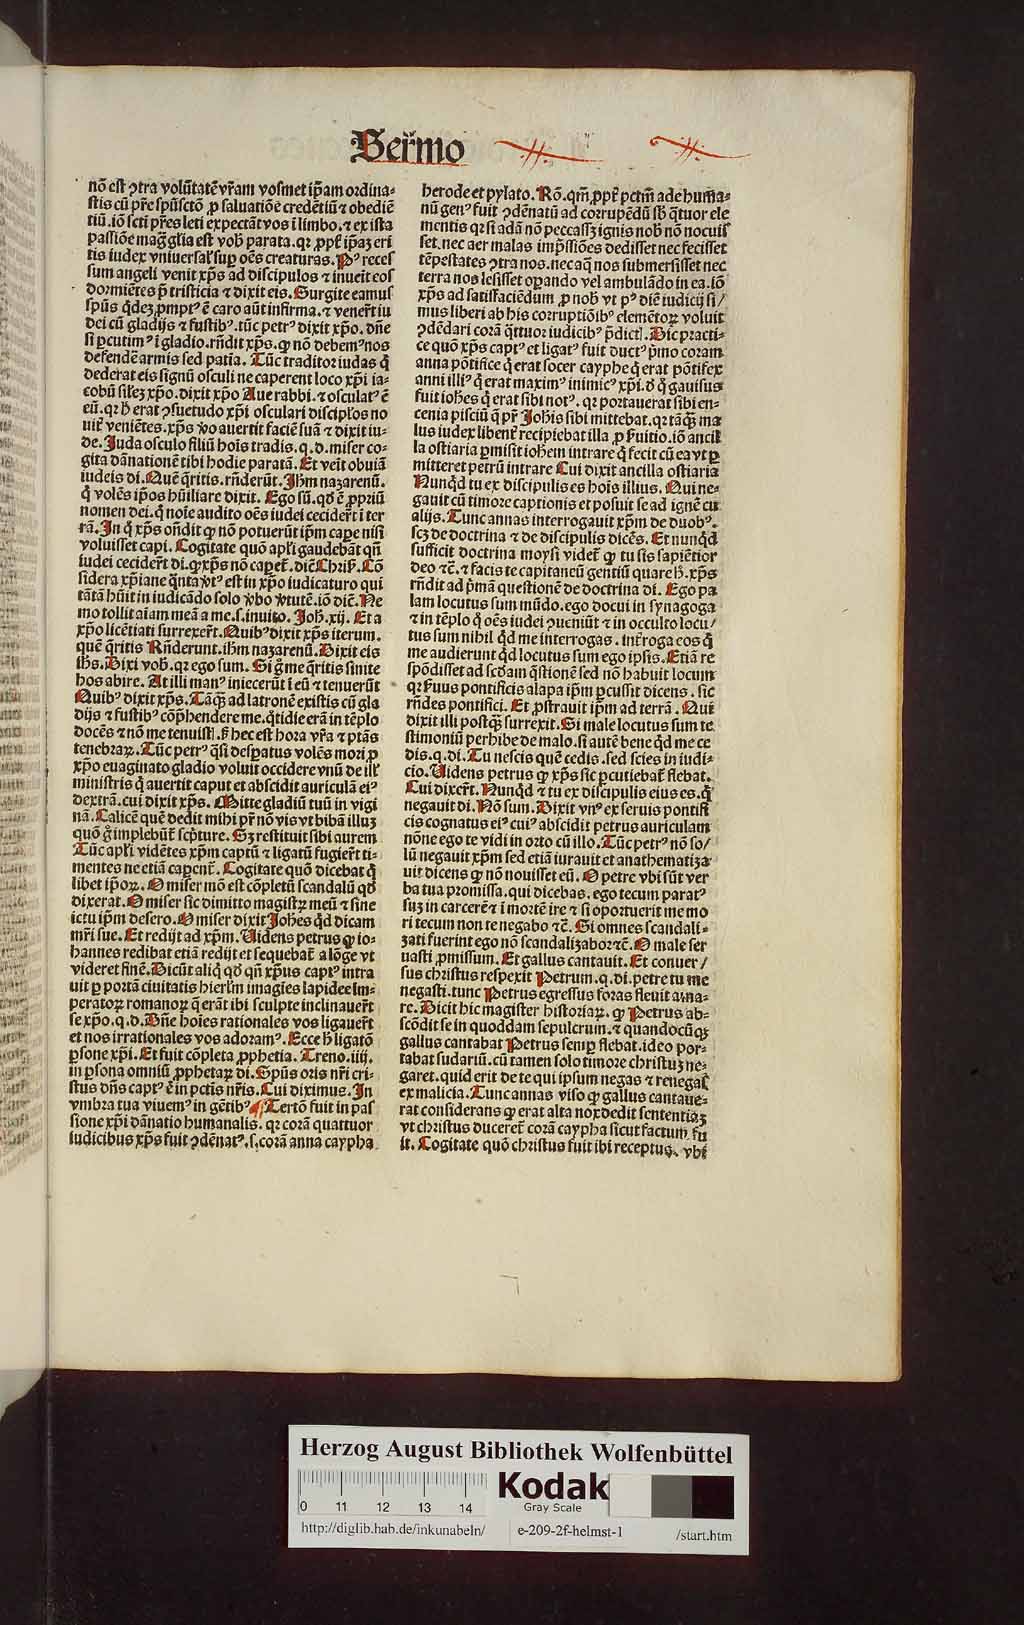 Sermo
nō est ꝯtra volūtatē vr̄am vosmet ip̄am ordina-
stis cū pr̄e spūsctō ꝓ saluatiōe credētiū ⁊ obediē
tiū .iō scti pr̄es leti expectāt vos ī limbo. ⁊ ex ista
passiōe mag̃ gl̄ia est vob̄ parata. qꝛ ꝓpt̓ ip̄aꝫ eri
tis iudex vniuersal̓ suꝑ oēs creaturas. Pꝰ reces
sum angeli venit xp̄s ad discipulos ⁊ inuēit eos
dormiētes p̄ tristicia ⁊ dixit eis. Surgite eamus
spūs q̇dez ꝓmptꝰ ē caro aūt infirma. ⁊ venerūt iu
dei cū gladijs ⁊ fustibꝰ. tūc petrꝰ dixit xp̄o. dn̄e
si ꝑcutimꝰ ī gladio. rn̄dit xp̄s. ꝙ nō debemꝰ nos
defendē armis sed patia. Tūc traditor iudas q̇
dederat eis signū osculi ne caperent loco xp̄i ia-
cobū sil̓eꝫ xp̄o. dixit xp̄o Aue rabbi. ⁊ osculatꝰ ē
eū. qꝛ h̄ erat ꝯsuetudo xp̄i osculari discipl̓os no
uit̓ veniētes. xp̄s v̓o auertit faciē suā ⁊ dixit iu-
de. Juda osculo filiū hoīs tradis. q. d. miser co-
gita dānationē tibi hodie paratā. Et veīt obuiā
iudeis di. Quē q̄ritis. rn̄derūt. Jhm nazarenū.
q̇ volēs ip̄os hūiliare dixit. Ego sū. qd̓ ē ꝓpriū
nomen dei. q̇ noīe audito oēs iudei ceciderūt ī ter
rā. In q̇ xp̄s on̄dit ꝙ nō potuerūt ip̄m caꝑe nisi
voluisset capi. Cogitate quō apl̓i gaudebāt qn̄
iudei ceciderūt di. ꝙ xp̄s nō capet̓. dic̄ Chris̓. Cō
sidera xp̄iane q̇nta v̓tꝰ est in xp̄o iudicaturo qui
tātā hūit in iudicādo solo v̓bo v̓tutē. iō dic̄. Ne
mo tollit aīam meā a me .s. inuito. Joh̓. xij. Et a
xp̄o licētiati surrexer̄t. Quibꝰ dixit xp̄s iterum.
quē q̄ritis Rn̄derunt. ihm nazarenū. Dixit eis
ih̄s. Dixi vob̄. qꝛ ego sum. Si g̊ me q̄ritis sinite
hos abire. At illi manꝰ iniecerūt ī eū ⁊ tenuerūt
Quibꝰ dixit xp̄s. Tāq̄ꝫ ad latronē existis cū gla
dijs ⁊ fustibꝰ cōp̄hendere me. q̇tidie erā in tēplo
docēs ⁊ nō me tenuistꝭ. s̓ hec est hora vr̄a ⁊ ptās
tenebraꝝ. Tūc petrꝰ q̇si despatus volēs mori ꝓ
xp̄o euaginato gladio voluit occidere vnū de ill̓
ministris q̇ auertit caput et abscidit auriculā eiꝰ
dextrā. cui dixit xp̄s. Mitte gladiū tuū in vagi
nā. Calicē quē dedit mihi pr̄ nō vis vt bibā illuꝫ
quō g̊ implebūt̓ sc̓pture. Sꝫ restituit sibi aurem
Tūc apl̓i vidētes xp̄m captū ⁊ ligatū fugier̄t ti-
mentes ne etiā caperent̓. Cogitate quō dicebat q̇
libet ip̄oꝝ. O miser mō est cōpletū scandalū qd̓
dixerat. O miser sic dimitto magistꝝ meū ⁊ sine
ictu ip̄m desero. O miser dixit Johēs q̇d dicam
mr̄i sue. Et redijt ad xp̄m. Uidens petrus ꝙ io-
hannes redibat etiā redijt et sequebat̓ a lōge vt
videret finē. Dicūt aliq̇ qd̓ qn̄ xp̄us captꝰ intra
uit ꝑ portā ciuitatis hierl̓m imagīes lapidee im-
peratoꝝ romanoꝝ q̄ erāt ibi sculpte inclinauer̄t
se xp̄o. q.d. Dn̄e hoīes rationales vos ligauer̄t
et nos irrationales vos adoramꝰ. Ecce h̄ ligatō
ꝑsone xp̄i. Et fuit cōpleta ꝓphetia. Treno. iiij.
in ꝑsona omniū ꝓphetaꝝ di. Spūs oris nr̄i cri-
stus dn̄s captꝰ ē in pctīs nr̄is. Cui diximus. In
vmbra tua viuemꝰ in gētibꝰ ¶ Tertō fuit in pas
sione xp̄i dānatio humanalis. qꝛ corā quattuor
iudicibus xp̄s fuit ꝯdēnatꝰ .s. corā anna caypha
herode et pylato. Rō. qm̄ ꝓpt̓ pctm̄ ade humā-
nū genꝰ fuit ꝯdēnatū ad corrupēdū sb̄ q̇tuor ele
mentis qꝛ si adā nō peccassꝫ ignis nob̄ nō nocuis
set. nec aer malas imp̄ssiōes dedisset nec fecisset
tēpestates ꝯtra nos. nec aq̄ nos submersisset nec
terra nos lesisset oꝑando vel ambulādo in ea. iō
xp̄s ad satisfaciēdum ꝓ nob̄ vt pꝰ diē iudicij si/
mus liberi ab his corruptiōibꝰ elemētoꝝ voluit
ꝯdēdari corā q̇ttuor iudicibꝰ p̄dictꝭ. Hic practi-
ce quō xp̄s captꝰ et ligatꝰ fuit ductꝰ p̓mo coram
anna pōtifice q̇ erat socer cayphe q̇ erat pōtifex
anni illiꝰ q̇ erat maximꝰ inimicꝰ xp̄i. d̓ q̇ gauisus
fuit iohēs q̇ erat sibi notꝰ. qꝛ portauerat sibi en-
cenia pisciū q̄ pr̄ Johīs sibi mittebat. qꝛ tāq̄ꝫ ma
lus iudex libent̓ recipiebat illa. ꝓ s̓uitio. iō ancil
la ostiaria ꝑmisit iohem intrare q̄ fecit cū ea vt ꝑ
mitteret petrū intrare Cui dixit ancilla ostiaria
Nunq̇d tu ex discipulis es hoīs illius. Qui ne-
gauit cū timore captionis et posuit se ad ignē cū
alijs. Tunc annas interrogauit xp̄m de duobꝰ.
scꝫ de doctrina ⁊ de discipulis dicēs. Et nunq̇d
sufficit doctrina moysi videt̓ ꝙ tu sis sapiētior
deo ⁊c̄. ⁊ facis te capitaneū gentiū quare h̄. xp̄s
rn̄dit ad p̓mā questionē de doctrina di. Ego pa
lam locutus sum mūdo. ego docui in synagoga
⁊ in tēplo q̊ oēs iudei ꝯueniūt ⁊ in occulto locu/
tus sum nihil q̇d me interrogas. int̓roga eos q̇
me audierunt q̇d locutus sum ego ipsis. Etiā re
spōdisset ad scd̓am q̄stionē sed nō habuit locum
qꝛ s̓uus pontificis alapa ip̄m ꝑcussit dicens. sic
rn̄des pontifici. Et ꝓstrauit ip̄m ad terrā. Qui
dixit illi postq̄ꝫ surrexit. Si male locutus sum te
stimoniū perhibe de malo. si autē bene q̇d me ce
dis. q. di. Tu nescis quē cedis. sed scies in iudi-
cio. Uidens petrus ꝙ xp̄s sic ꝑcutiebat̓ flebat.
Cui dixer̄t. Nunq̇d ⁊ tu ex discipulis eius es. q̇
negauit di. Nō sum. Dixit vnꝰ ex seruis pontifi
cis cognatus eiꝰ cuiꝰ abscidit petrus auriculam
nōne ego te vidi in orto cū illo. Tūc petrꝰ nō so/
lū negauit xp̄m sed etiā iurauit et anathematiza
uit dicens ꝙ nō nouisset eū. O petre vbi sūt ver
ba tua promissa. qui dicebas. ego tecum paratꝰ
suꝫ in carcerē ⁊ ī mortē ire ⁊ si oportuerit me mo
ri tecum non te negabo ⁊c̄. Si omnes scandali-
zati fuerint ego nō scandalizabor ⁊c̄. O male ser
uasti ꝓmissum. Et gallus cantauit. Et conuer/
sus christus respexit Petrum. q. di. petre tu me
negasti. tunc Petrus egressus foras fleuit ama-
re. Dicit hic magister historiaꝝ. ꝙ Petrus ab-
scōdit se in quoddam sepulcrum. ⁊ quandocūqꝫ
gallus cantabat Petrus semꝑ flebat. ideo por-
tabat sudariū. cū tamen solo timore christuꝫ ne-
garet. quid erit de te qui ipsum negas ⁊ renegas
ex malicia. Tunc annas viso ꝙ gallus cantaue-
rat considerans ꝙ erat alta nox dedit sententiaꝫ
vt christus duceret̓ corā caypha sicut factum fu
it. Cogitate quō christus fuit ibi receptus. vbi
Herzog August Bibliothek Wolfenbüttel
0 11 12 13 14
Kodak
Gray Scale
http://diglib.hab.de/inkunabeln/ e-209-2f-helmst-1 /start.htm